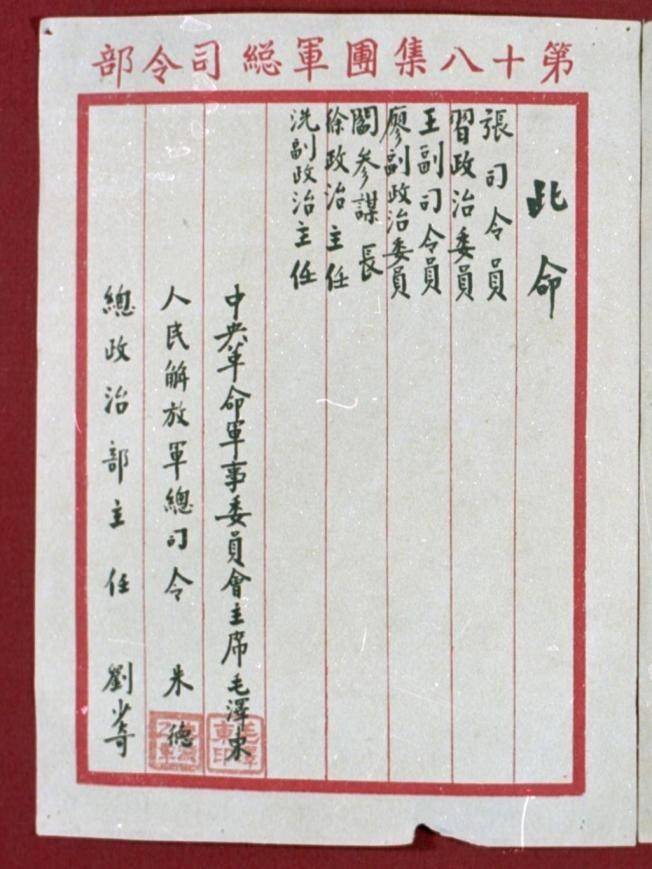 第十八集團軍總司令部
此命
張司令員
習政治委員
王副司令員
廖副政治委員
閻參謀長
徐政治主任
冼副政治主任
中央革命軍事委員會主席毛澤東
人民解放軍總司令 朱德
總政治部主任 劉少奇